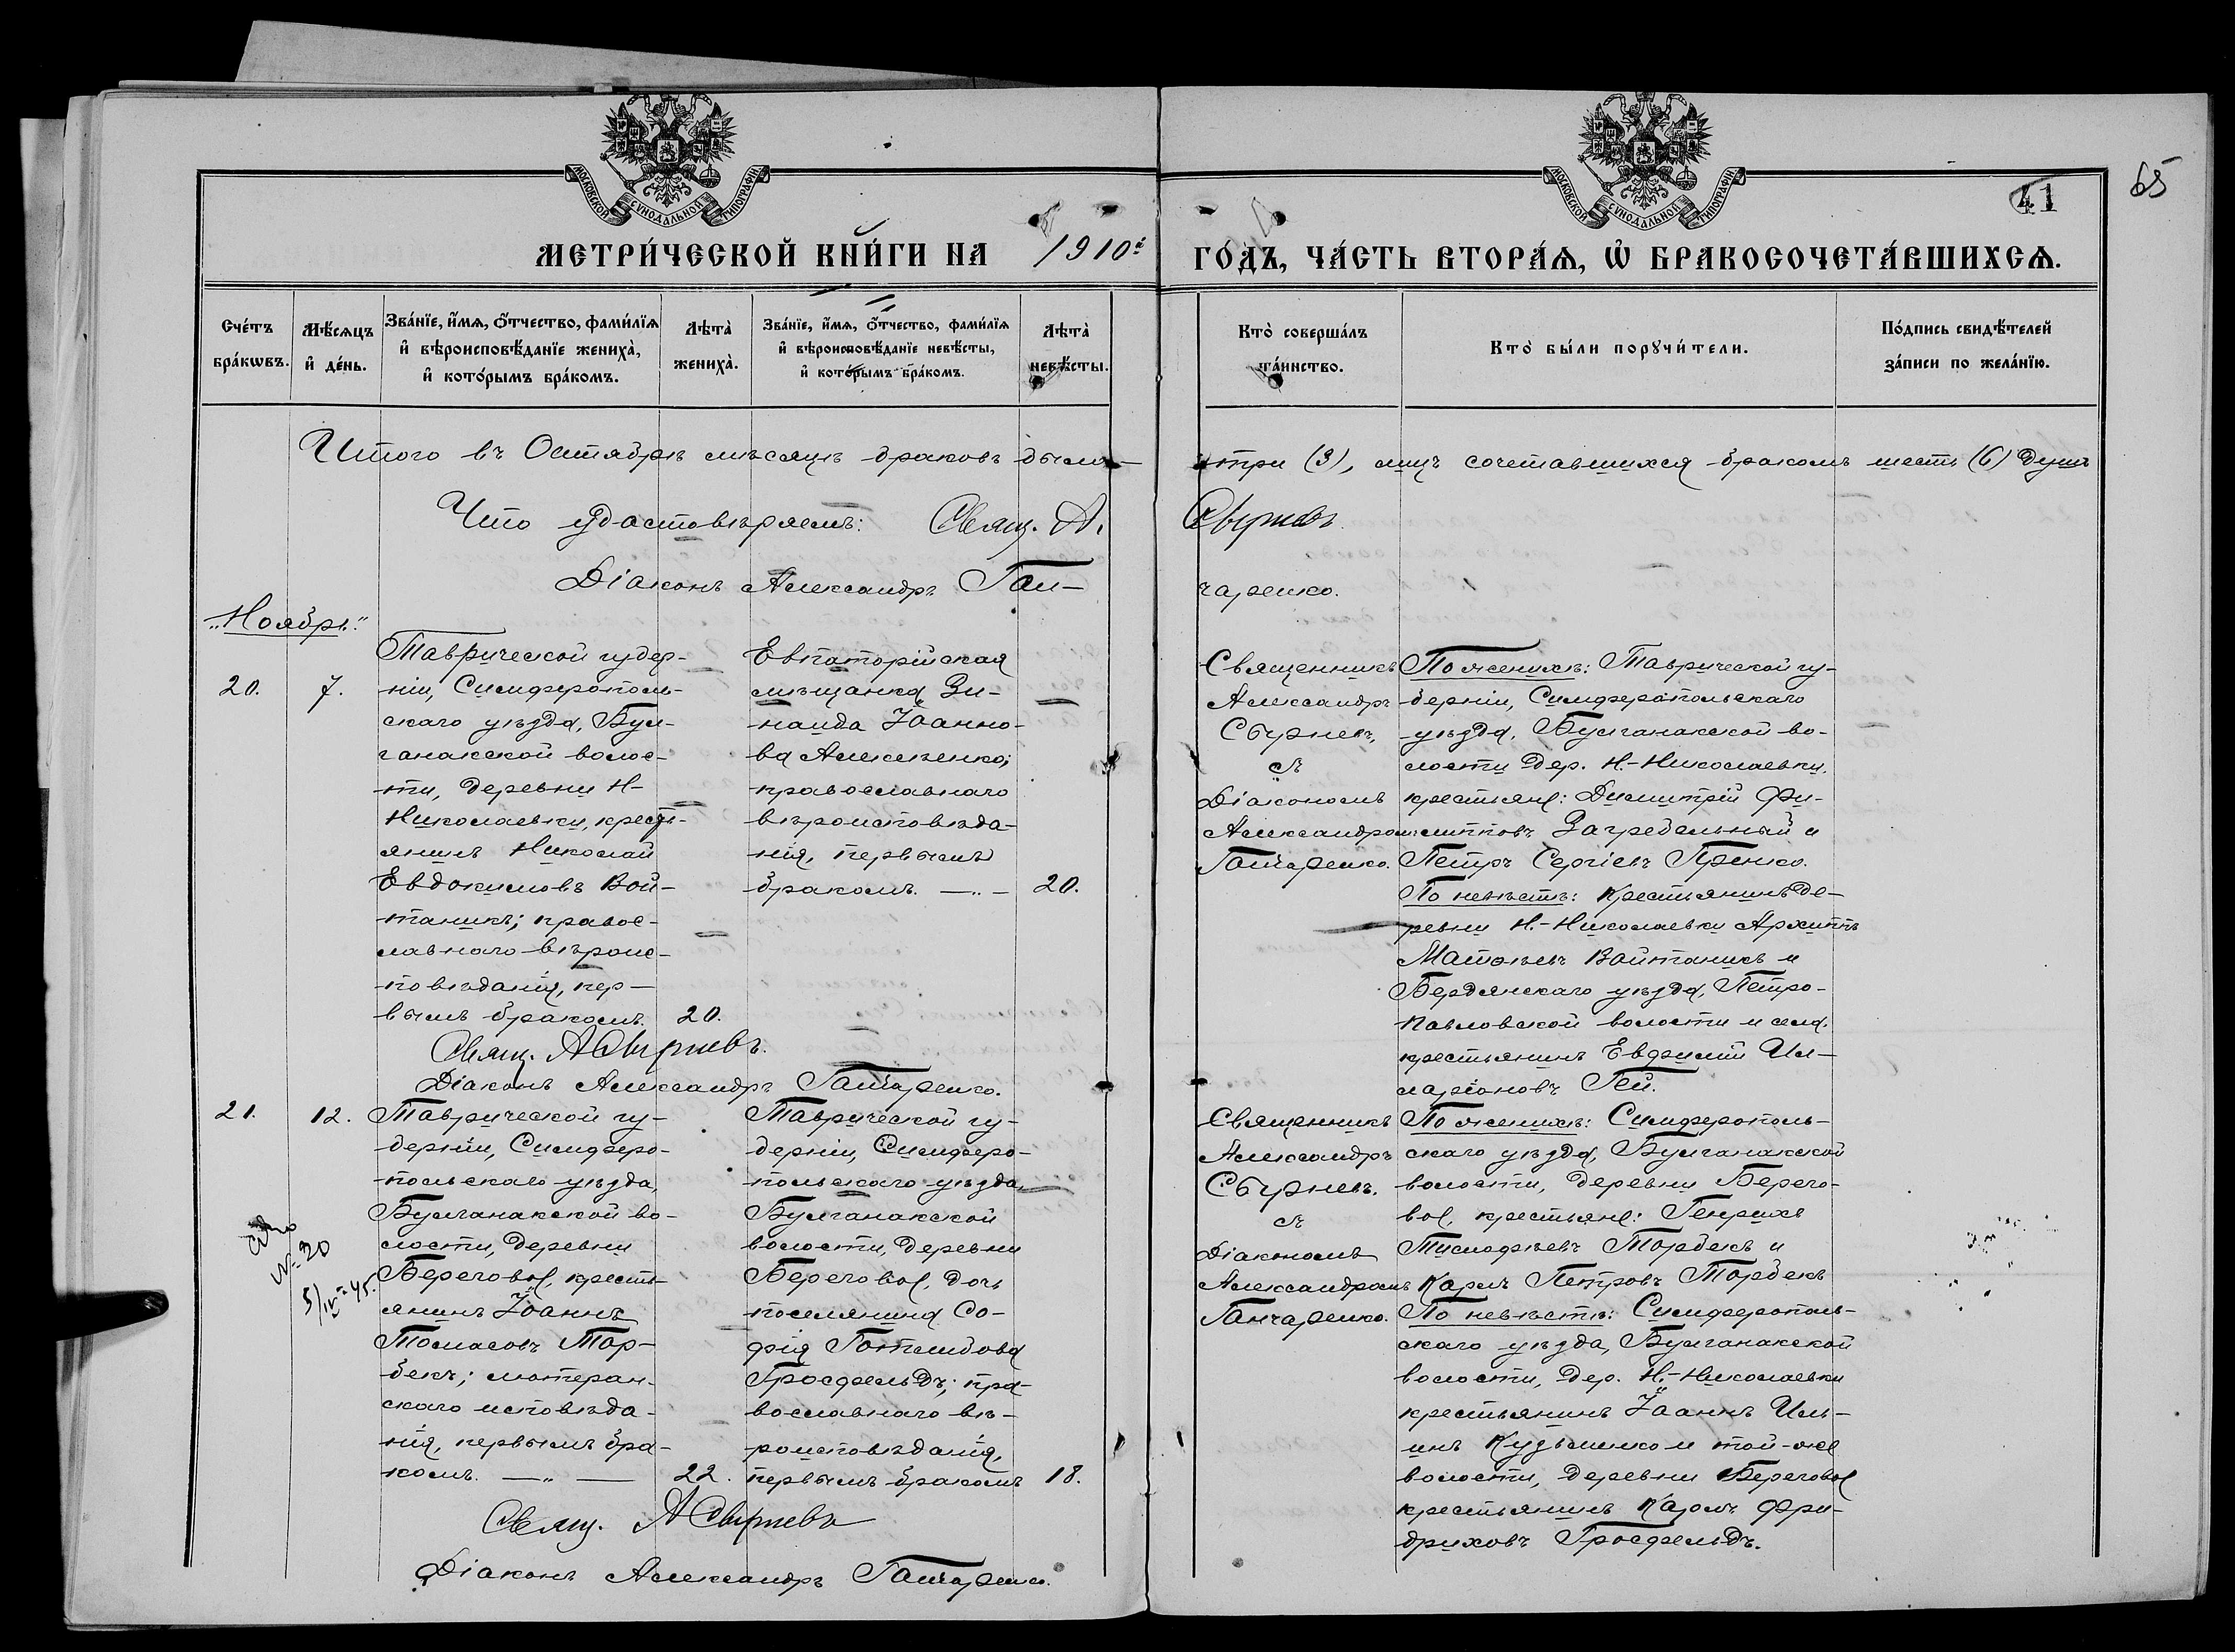 МОСКОВСКОЙ СѴНОДАЛЬНОЙ ТИПОГРАФІИ
МОСКОВСКОЙ СѴНОДАЛЬНОЙ ТИПОГРАФІИ
41
65
МЕТРИ́ЧЕСКОЙ КНИ́ГИ НА 1910й ГО́ДЪ, ЧА́СТЬ ВТОРА́Ѧ, Ѡ БРАКОСОЧЕТА́ВШИХСѦ.
Сче́тъ
бра́кѡвъ.
Мѣ́сѧцъ
и҆ де́нь.
Зва́нїе, и҆́мѧ, ѻ҆́тчество, фами́лїѧ
и҆ вѣроисповѣ́данїе жениха̀,
и҆ кото́рымъ бра́комъ.
Лѣта̀
жениха̀.
Зва́нїе, и҆́мѧ, ѻ҆́тчество, фами́лїѧ
и҆ вѣроисповѣ́данїе невѣ́сты,
и҆ кото́рымъ бра́комъ.
Лѣта̀
невѣ́сты.
Кто̀ соверша́лъ
та́инство.
Кто̀ бы́ли порꙋчи́тели.
По́дпись свидѣ́телей
за́писи по жела́нїю.
Итого въ Октябрѣ мѣсяцѣ браковъ было три (3), лицъ сочетавшихся бракомъ шесть (6) душъ
Что удостовѣряемъ: Свящ. А. Свырневъ
Діаконъ Александръ Гон-
чаренко.
"Ноябрь"
20.
7.
Таврической губер-
ніи, Симферополь-
скаго уѣзда, Бул-
ганакской волос-
ти, деревни Н-
Николаевки, кресть-
янинъ Николай
Евдокимовъ Вой-
таникъ; правос-
лавнаго вѣроис-
повѣданія, пер-
вымъ бракомъ. 20.
Евпаторійская
мѣщанка Зи-
наида Іоанно-
ва Алексѣенко;
православнаго
вѣроисповѣда-
нія, первымъ
бракомъ. —„— 20.
Священникъ
Александръ
Свырневъ,
съ
Діакономъ
Александромъ
Гончаренко.
По женихѣ: Таврической гу-
берніи, Симферопольскаго
уѣзда, Булганакской во-
лости дер. Н.-Николаевки,
крестьяне: Димитрій Фи-
липповъ Загребельный и
Петръ Сергіевъ
По невѣстѣ: Крестьянинъ де-
ревни Н.-Николаевки Архиппъ
Матѳѣевъ Войтаникъ и
Бердянскаго уѣзда, Петро-
павловской волости и села
крестьянинъ Евфимій Ил-
ларіоновъ Гей.
Свящ. А Свырневъ.
Діаконъ Александръ Гончаренко.
21.
12.
№ 30
5/IV-45.
Таврической гу-
берніи, Симферо-
польскаго уѣзда,
Булганакской во-
лости, деревни
Береговое, кресть-
янинъ Іоаннъ
Томасовъ Тор-
бекъ; лютеран-
скаго исповѣда-
нія, первымъ бра-
комъ. —„— 22.
Таврической гу-
берніи, Симферо-
польскаго уѣзда,
Булганакской
волости, деревни
Береговое, дочь
поселянина Со-
фія Готлибова
Гросфельдъ; пра-
вославнаго вѣ-
роисповѣданія,
первымъ бракомъ 18.
Священникъ
Александръ
Свырневъ.
съ
Діакономъ
Александромъ
Гончаренко.
По женихѣ: Симферополь-
скаго уѣзда, Булганакской
волости, деревни Берего-
вое, крестьяне: Генрихъ
Тимофѣевъ Торбекъ и
Карлъ Петровъ Торбекъ
По невѣстѣ: Симферополь-
скаго уѣзда, Булганакской
волости, дер. Н.-Николаевки
крестьянинъ Іоаннъ Иль-
инъ Кузьменко и той-же
волости, деревни Береговое
крестьянинъ Карлъ Фри-
дриховъ Гросфельдъ.
Свящ. А Свырневъ
Діаконъ Александръ Гончаренко.